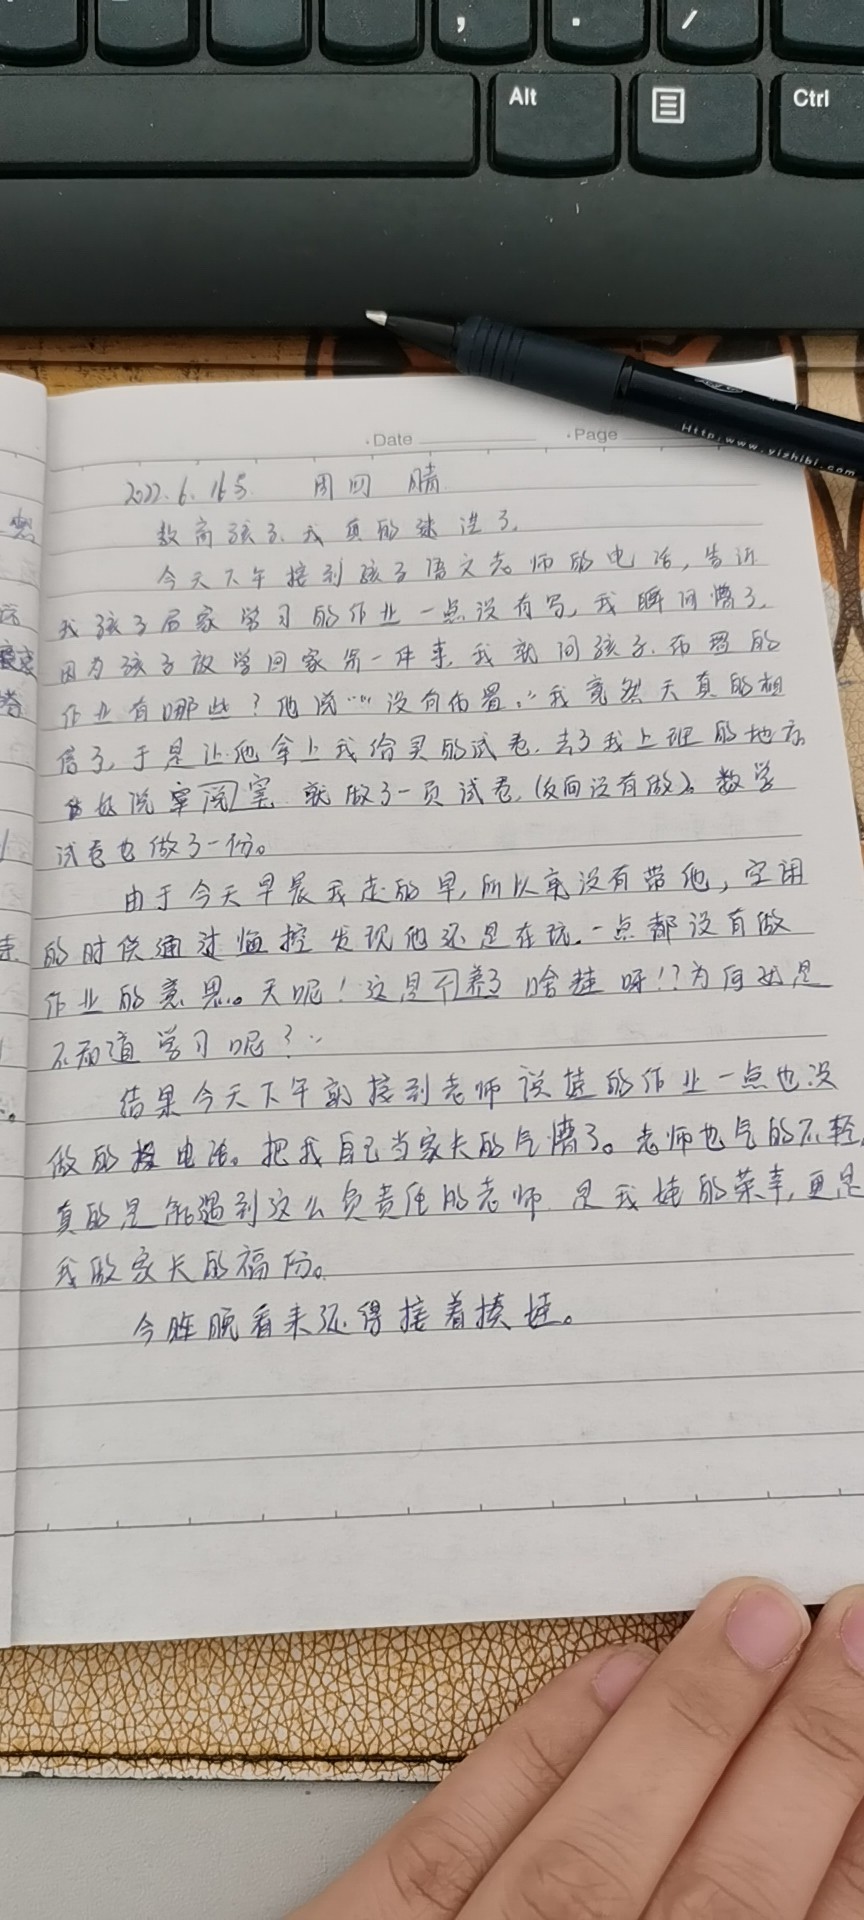 Alt
Ctrl
Http:www.yizhibi.com
·Date ·Page
2022.6.16号 周四 晴
教育孩子、我真的迷茫了、
今天下午接到孩子语文老师的电话，告诉
我孩子居家学习的作业一点没有写，我瞬间懵了、
因为孩子放学回家第一件事、我就问孩子、布置的
作业有哪些？他说“没有布置”我竟然天真的相
信了，于是让他拿上我给买的试卷、去了我上班的地方
就做了一页试卷，（反面没有做）、数学
试卷也做了一份。
由于今天早晨我走的早，所以就没有带他，空闲
的时候通过监控发现他还是在玩、一点都没有做
作业的意思。天呢！这是养了啥娃呀！？为何就是
不知道学习呢？
结果今天下午就接到老师说娃的作业一点也没
做的电话。把我自己当家长的气懵了。老师也气的不轻，
真的是能遇到这么负责任的老师是我娃的荣幸，更是
我做家长的福份。
今晚看来还得接着揍娃。